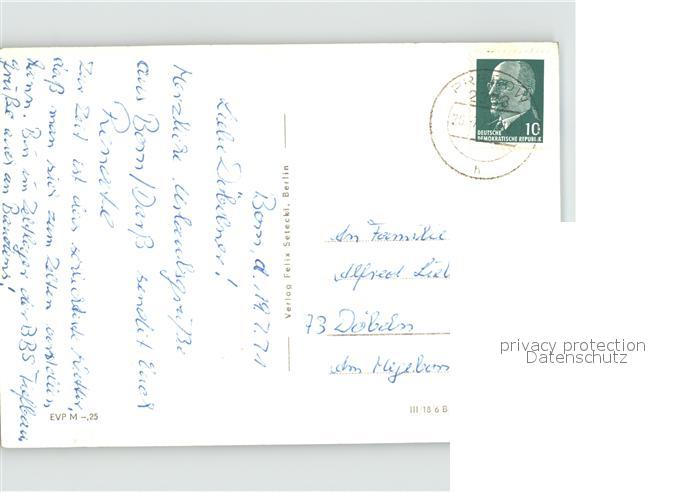 Born, d. 19.7.71
Liebe Döbelner!
Herzliche Urlaubsgrüße
aus Born/Darß sendet Euch
Renate
Zur Zeit ist das
daß man sich zum Zelten
kann. Bin im Zeltlager der BBS Tiefbau
grüße auch an Bandens!
EVP M –,25
Verlag Felix Setecki, Berlin
DEUTSCHE
DEMOKRATISCHE REPUBLIK
10
h
An Familie
Alfred Lieb
73 Döbeln
Am
III/18/6 B
privacy protection
Datenschutz